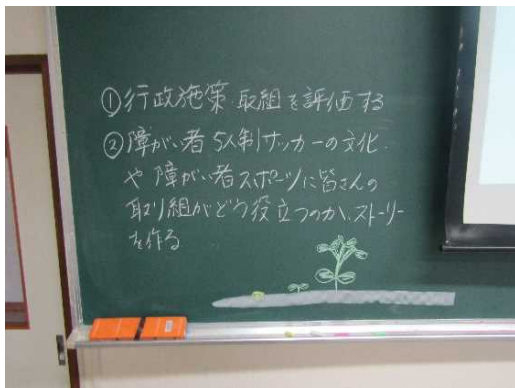 ①行政施策・取組を評価する
②障がい者5人制サッカーの文化
や障がい者スポーツに皆さんの
取り組がどう役立つのか、ストーリー
を作る